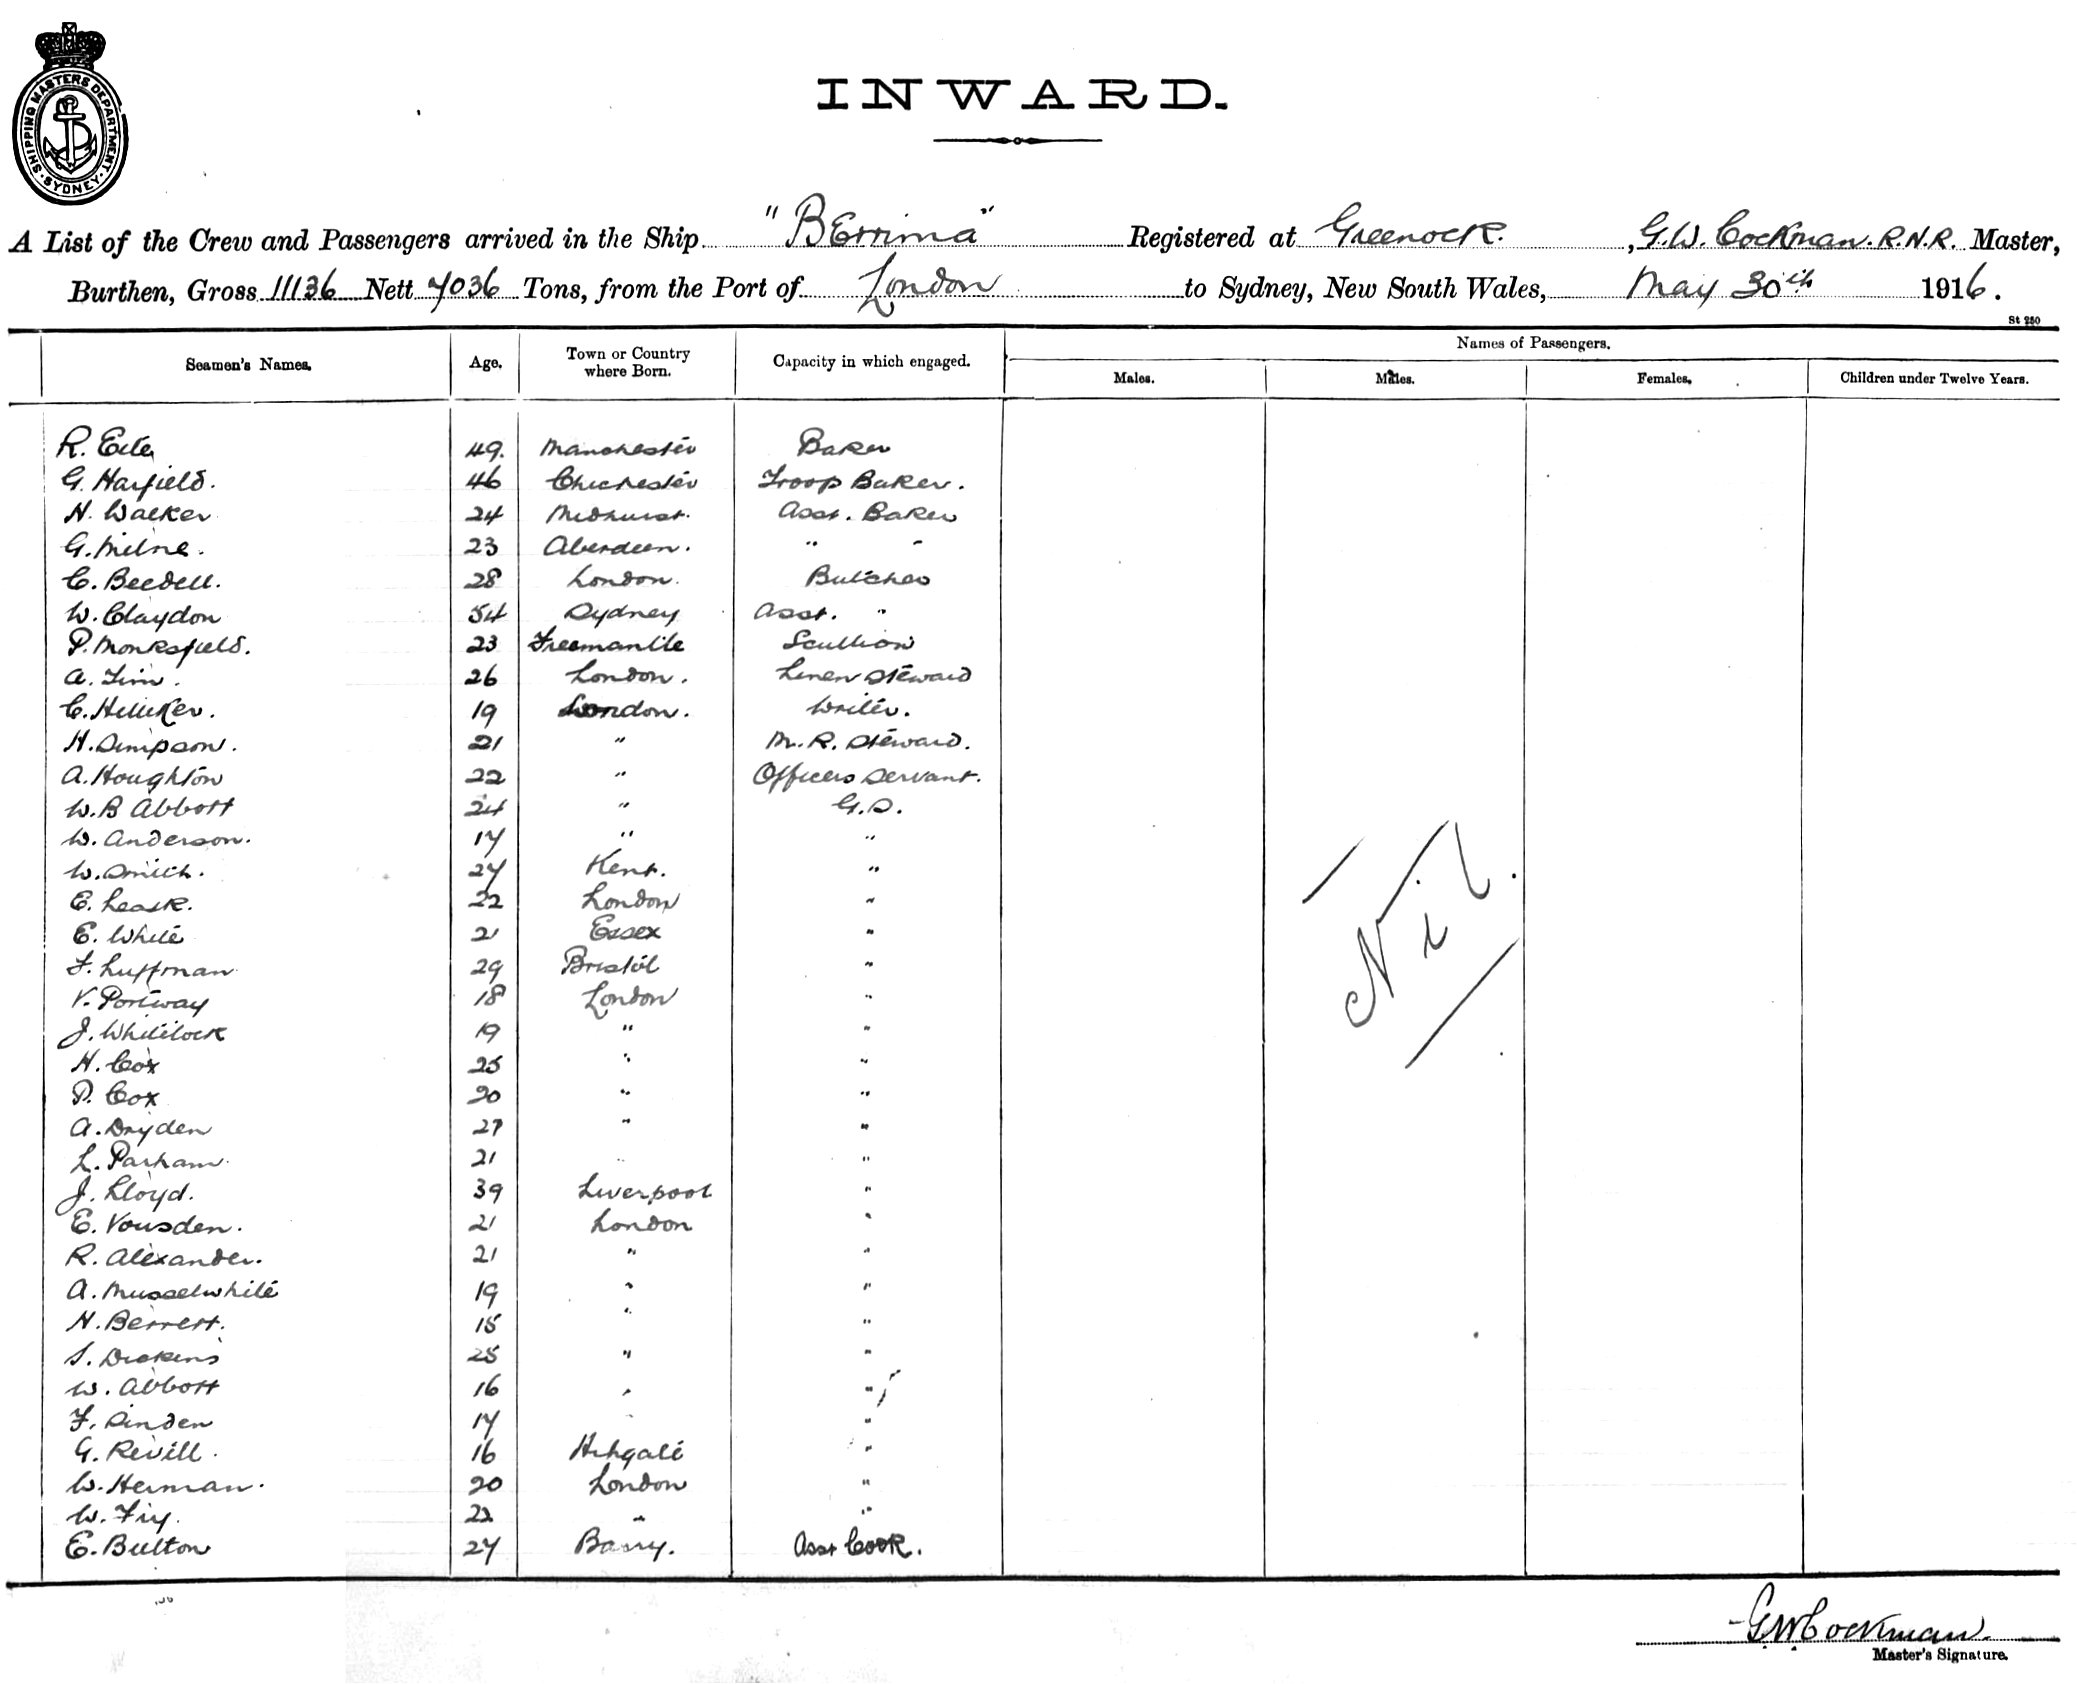 SHIPPING MASTERS DEPARTMENT. SYDNEY
INWARD.
A List of the Crew and Passengers arrived in the Ship "BErrima" Registered at Greenock. , G.W. Cockman. R.N.R. Master,
Burthen, Gross 11136 Nett 7036 Tons, from the Port of London to Sydney, New South Wales, May 30th 1916.
St 250
Seamen's Names. Age. Town or Country where Born. Capacity in which engaged. Names of Passengers.
Males. Males. Females. Children under Twelve Years.
R. 49. Manchester Baker
G. Harfield. 46 Chichester Troop Baker.
H. Walker 24 Midhurst. Asst. Baker
G. Milne. 23 Aberdeen. " "
C. Beedell. 28 London. Butcher
W. Claydon 54 Sydney Asst. "
P. Monksfield. 23 Freemantle Scullion
A. Tim. 26 London. Linen Steward
C. Hilliker. 19 London. Writer.
H. Simpson. 21 " M. R. Steward.
A. Houghton 22 " Officers Servant.
W. B Abbott 24 " G.S.
W. Anderson. 17 " "
W. Smith. 27 Kent. "
E. Leask. 22 London "
E. White 21 Essex "
F. Luffman 29 Bristol "
V. Portway 18 London "
J. Whitelock 19 " "
H. Cox 25 " "
P. Cox 20 " "
A. Dryden 27 " "
L. Parham. 21 " "
J. Lloyd. 39 Liverpool "
E. Vousden. 21 London "
R. Alexander. 21 " "
A. Musselwhite 19 " "
H. Berrett. 18 " "
S. Dickens 25 " "
W. Abbott 16 " "
F. Sinden 17 " "
G. Revill. 16 Hihgate "
W. Herman. 20 London "
W. Fry. 22 " "
E. Bulton 27 Barry. Asst Cook.
Nil.
G W Cockman.
Master's Signature.